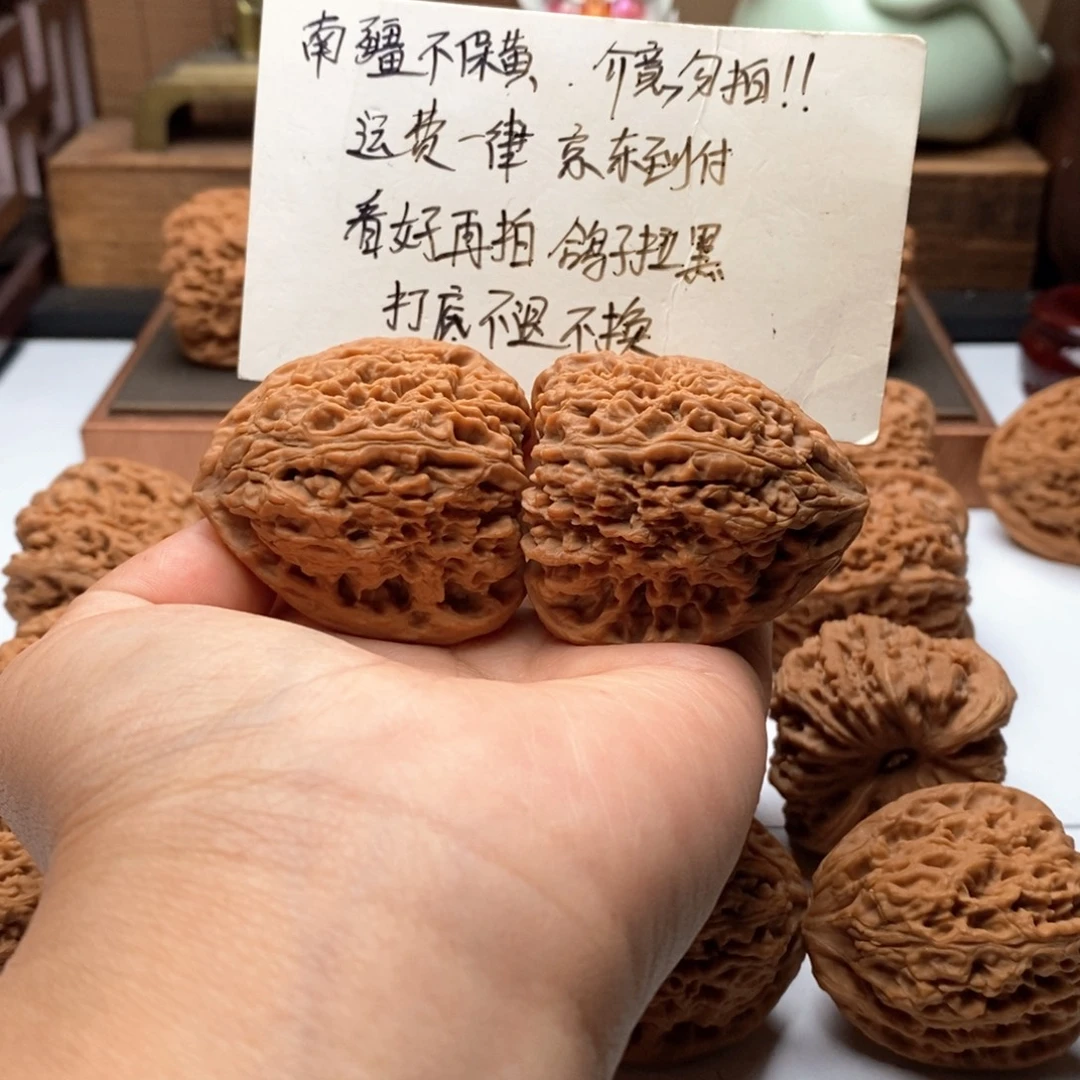 南疆不保黄、介意勿拍!!
运费一律 京东到付
看好再拍 鸽子拉黑
打底不退不换